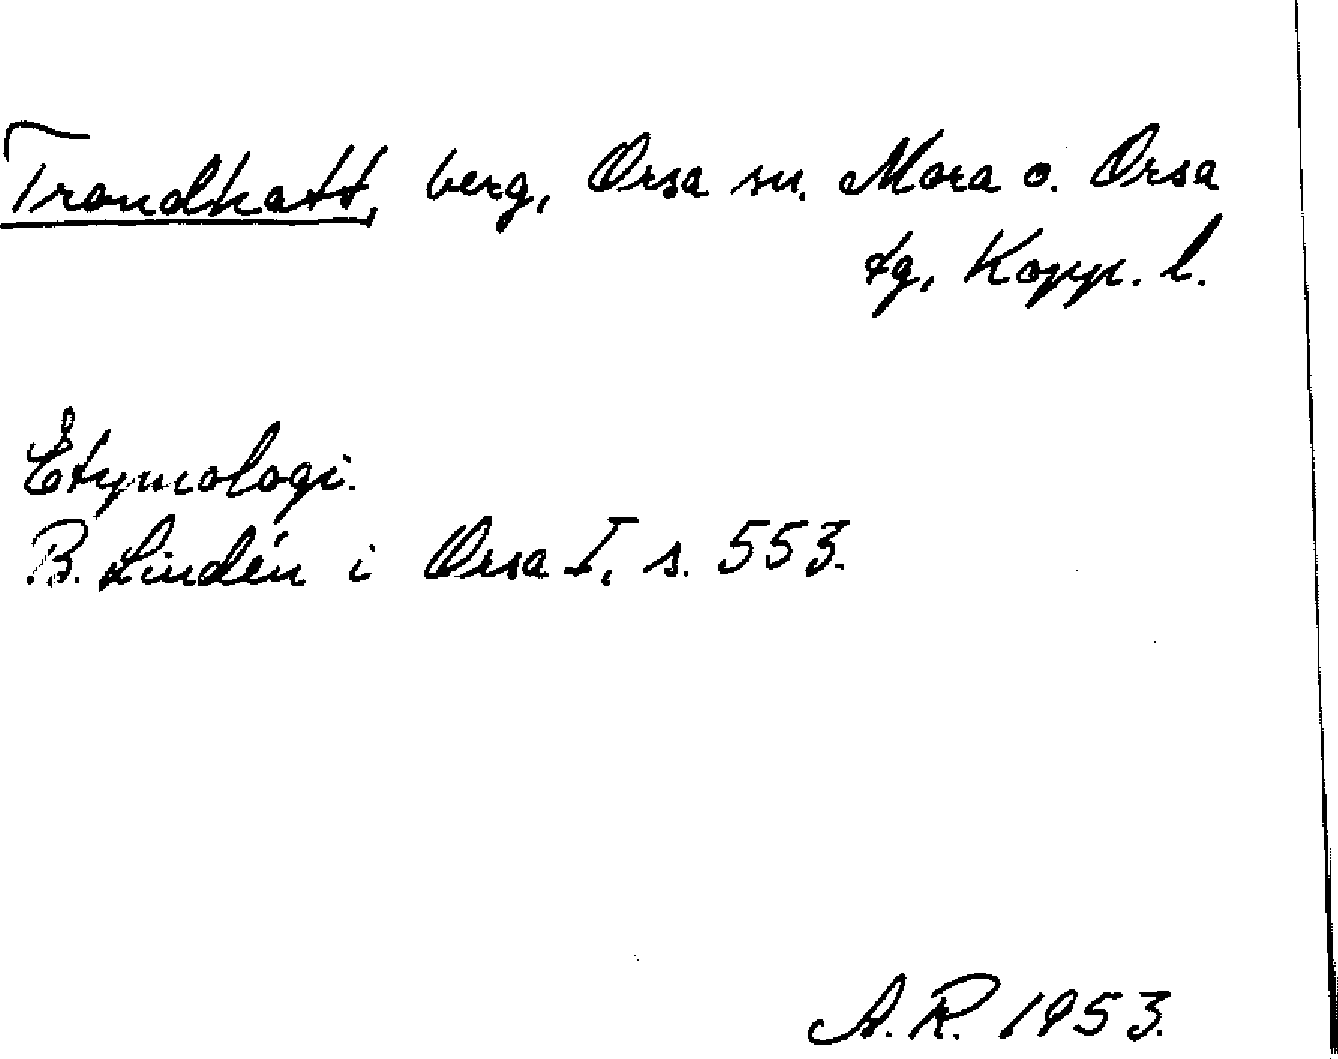 Trondhatt, berg, Orsa sn. Mora o. Orsa
tg, Kopp. l.
Etymologi.
B. Lindén i Orsa I, s. 553.
A. R. 1953.